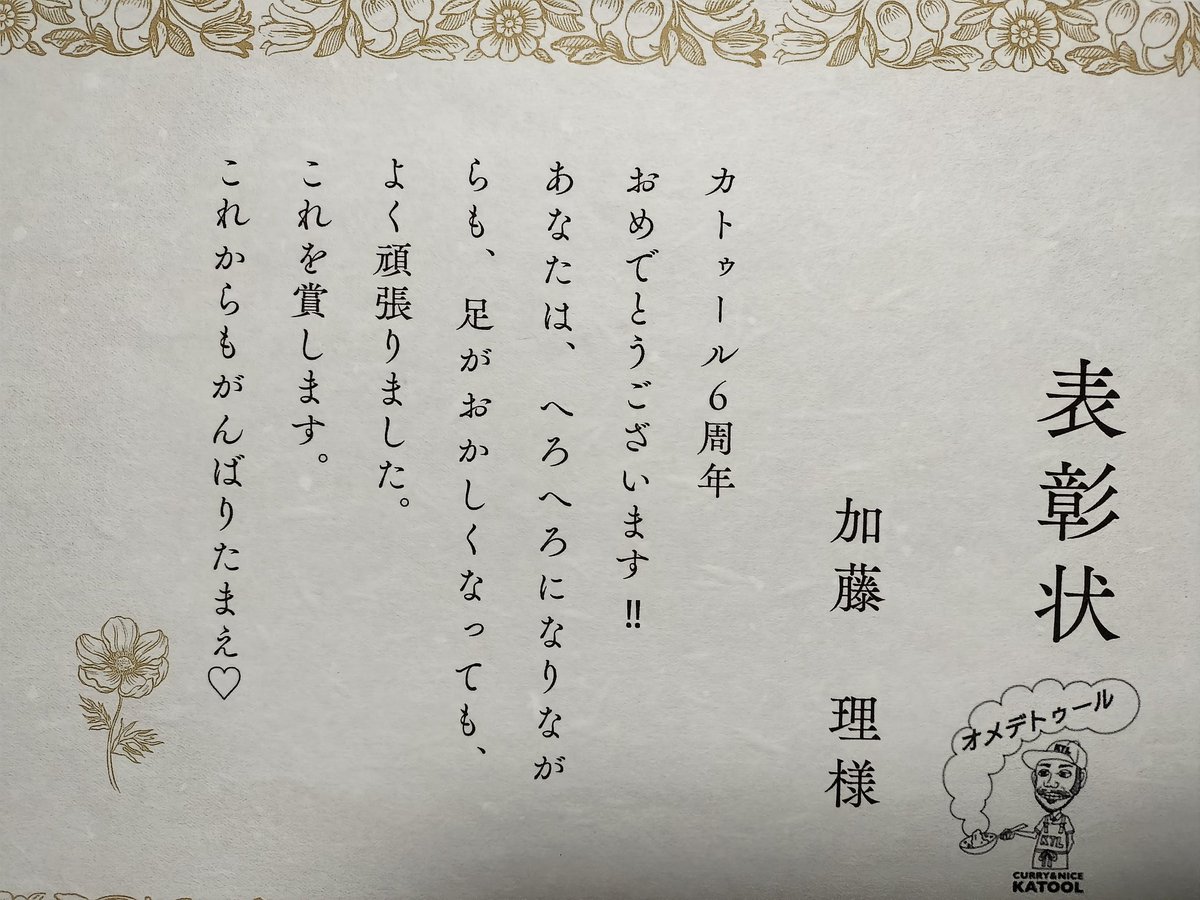 表彰状
加藤 理様
カトゥール6周年
おめでとうございます‼
あなたは、へろへろになりなが
らも、足がおかしくなっても、
よく頑張りました。
これを賞します。
これからもがんばりたまえ♡
オメデトゥール
KTL
KTL
CURRY&NICE
KATOOL